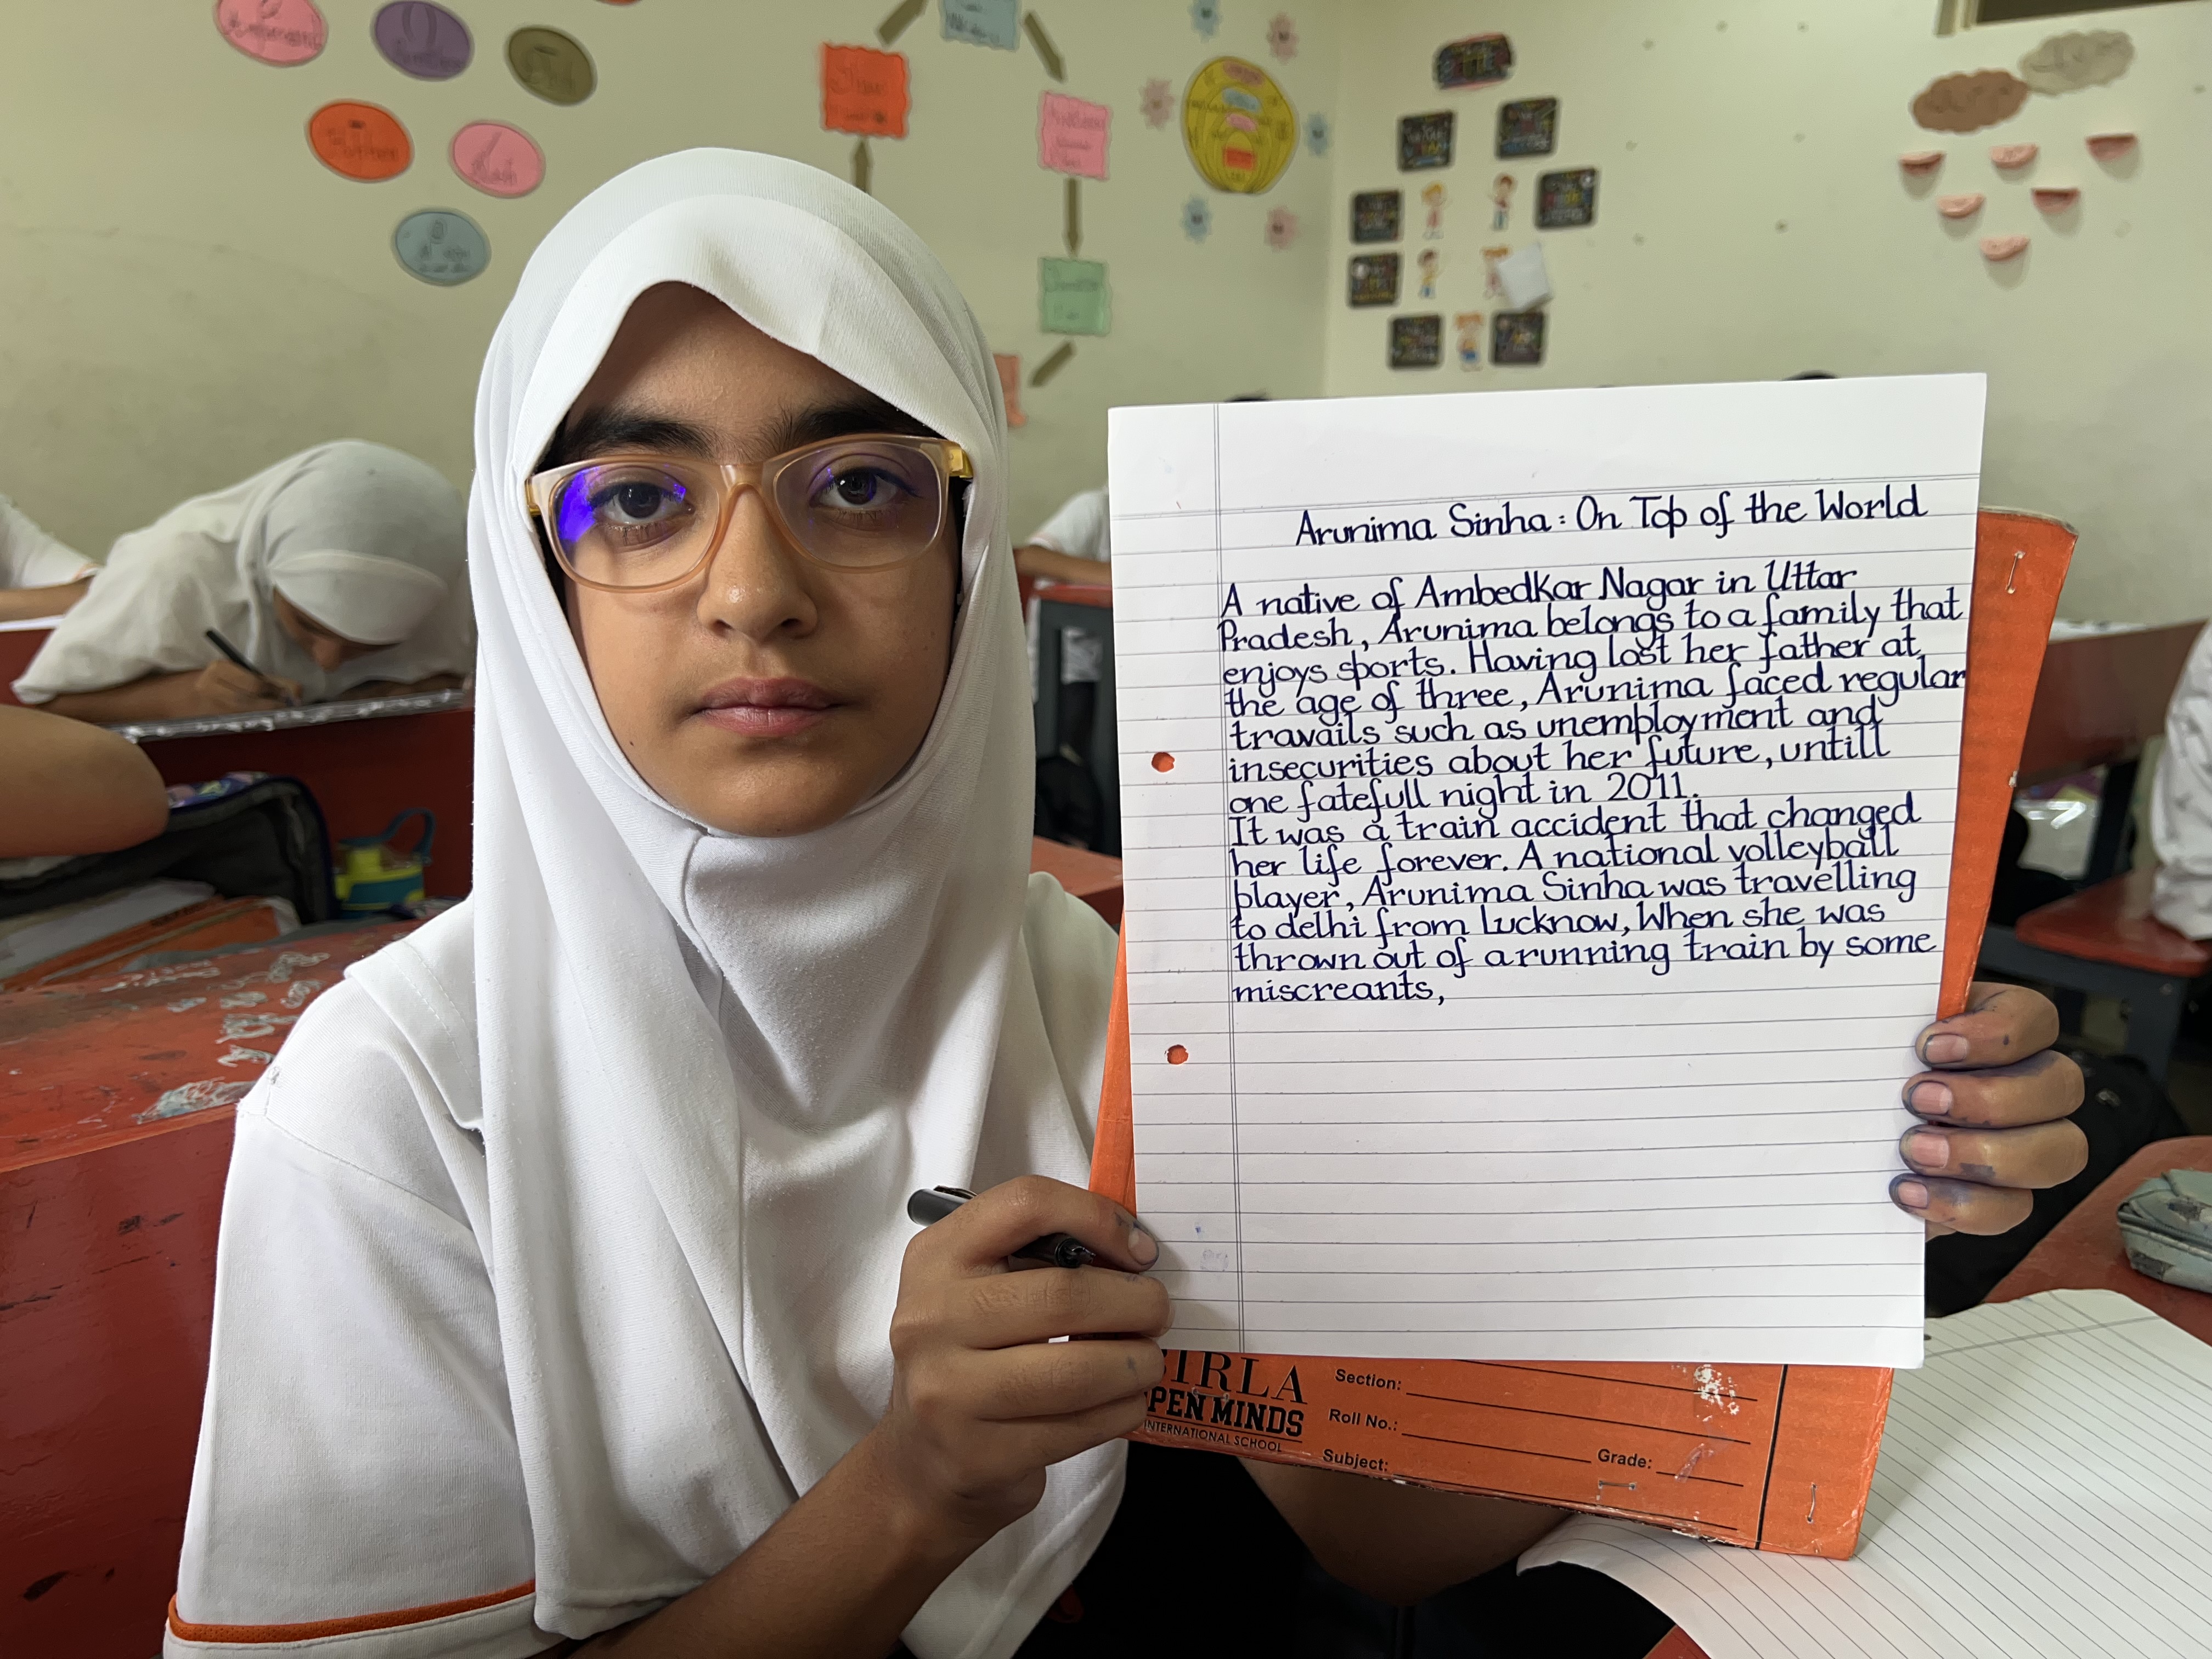 Arunima Sinha : On Top of the World
A native of Ambedkar Nagar in Uttar
Pradesh, Arunima belongs to a family that
enjoys sports. Having lost her father at
the age of three, Arunima faced regular
travails such as unemployment and
insecurities about her future, untill
one fatefull night in 2011.
It was a train accident that changed
her life forever. A national volleyball
player, Arunima Sinha was travelling
to delhi from Lucknow, When she was
thrown out of a running train by some
miscreants,
PEN MINDS
INTERNATIONAL SCHOOL
Section:
Roll No.:
Subject:
Grade: